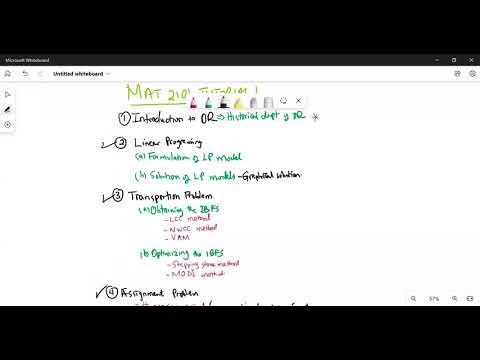 Microsoft Whiteboard
Untitled whiteboard
MAT 2101 TUTORIAL 1
① Introduction to OR ⇒ Historical dvpt of OR *
✓② Linear Programing
(a) Formulation of LP model
(b) Solution of LP models - Graphical solution
✓③ Transportion Problem
(a) Obtaining the IBFS
- LCC method
- NWCC method
- VAM
(b) Optimizing the IBFS
- Stepping stone method
- MODI method
✓④ Assignment Problem
57%